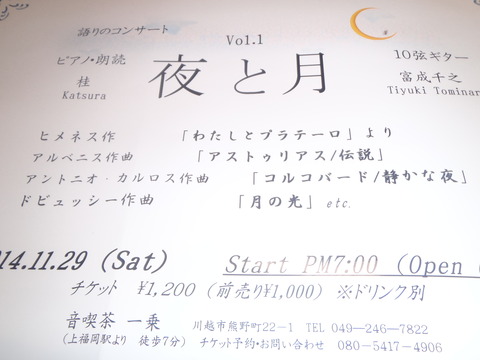 語りのコンサート
Vol.1
夜と月
ピアノ・朗読
桂
Katsura
10弦ギター
富成千之
Tiyuki Tominar
ヒメネス作 「わたしとプラテーロ」より
アルベニス作曲 「アストゥリアス/伝説」
アントニオ・カルロス作曲 「コルコバード/静かな夜」
ドビュッシー作曲 「月の光」 etc.
14.11.29 (Sat) Start PM7:00 (Open
チケット ¥1,200 (前売り¥1,000) ※ドリンク別
音喫茶 一乗 川越市熊野町22-1 TEL 049-246-7822
(上福岡駅より 徒歩7分) チケット予約・お問い合わせ 080-5417-4906